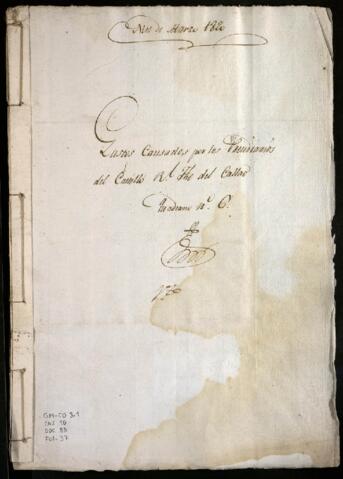 Mes de Marzo 1820
Gastos Causados por los Presidiarios
del Castillo Rl Fhe del Callao
Quaderno No. 6.
GM-CO 3.1
CAJ 10
DOC 88
FOL-37